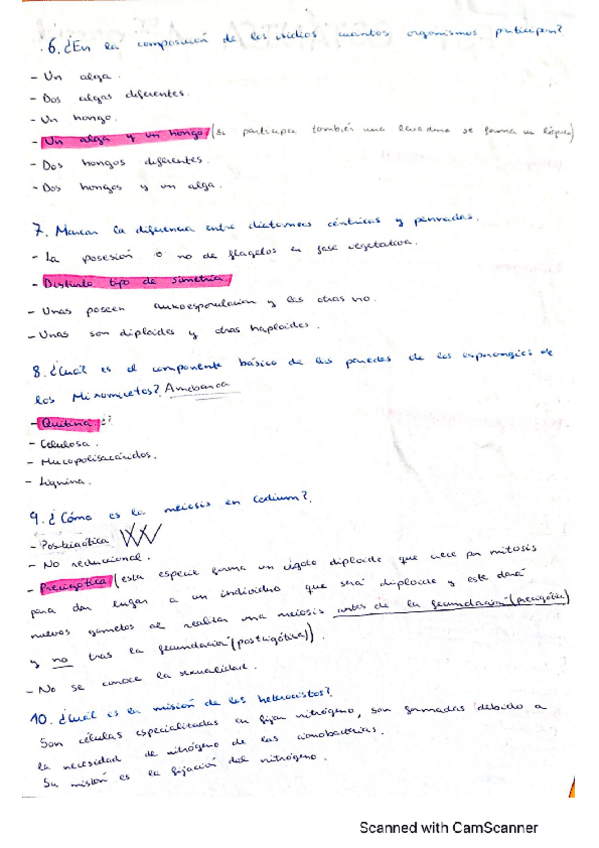 6. ¿En la composición de los isidios cuantos organismos participan?
- Un alga.
- Dos algas diferentes.
- Un hongo.
- Un alga y un hongo (si participa también una levadura se forma un líquen)
- Dos hongos diferentes.
- Dos hongos y un alga.
7. Marcar la diferencia entre diatomeas céntricas y pennadas.
- La posesión o no de flagelos en fase vegetativa.
- Distinto tipo de simetría.
- Unas poseen auxoesporulación y las otras no.
- Unas son diploides y otras haploides.
8. ¿Cuál es el componente básico de las paredes de los esporangios de
los Mixomicetos? Amebozoa
- Quitina ¿?
- Celulosa.
- Mucopolisacáridos.
- Lignina.
9. ¿Cómo es la meiosis en Codium?
- Postcigótica
- No reduccional.
- Precigótica (esta especie forma un cigoto diploide que crece por mitosis
para dar lugar a un individuo que será diploide y este dará
nuevos gametos al realizar una meiosis antes de la fecundación (precigótica)
y no tras la fecundación (postcigótica)).
- No se conoce la sexualidad.
10. ¿Cuál es la misión de los heterocistos?
Son células especializadas en fijar nitrógeno, son formadas debido a
la necesidad de nitrógeno de las cianobacterias.
Su misión es la fijación del nitrógeno.
Scanned with CamScanner